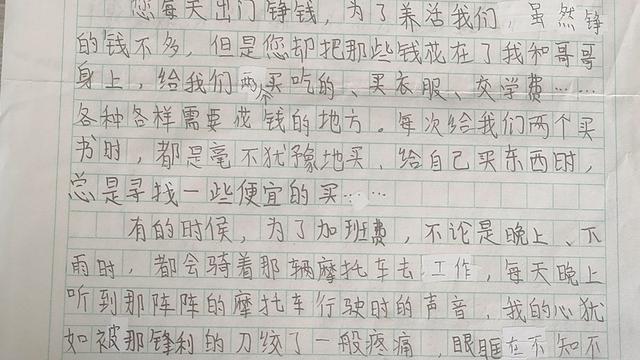 您每天出门铮钱，为了养活我们，虽然铮
的钱不多，但是您却把那些钱花在了我和哥哥
身上，给我们两个买吃的、买衣服、交学费……
各种各样需要花钱的地方。每次给我们两个买
书时，都是毫不犹豫地买，给自己买东西时，
总是寻找一些便宜的买……
有的时候，为了加班费，不论是晚上、下
雨时，都会骑着那辆摩托车去工作，每天晚上
听到那阵阵的摩托车行驶时的声音，我的心犹
如被那锋利的刀绞了一般疼痛，眼眶在不知不